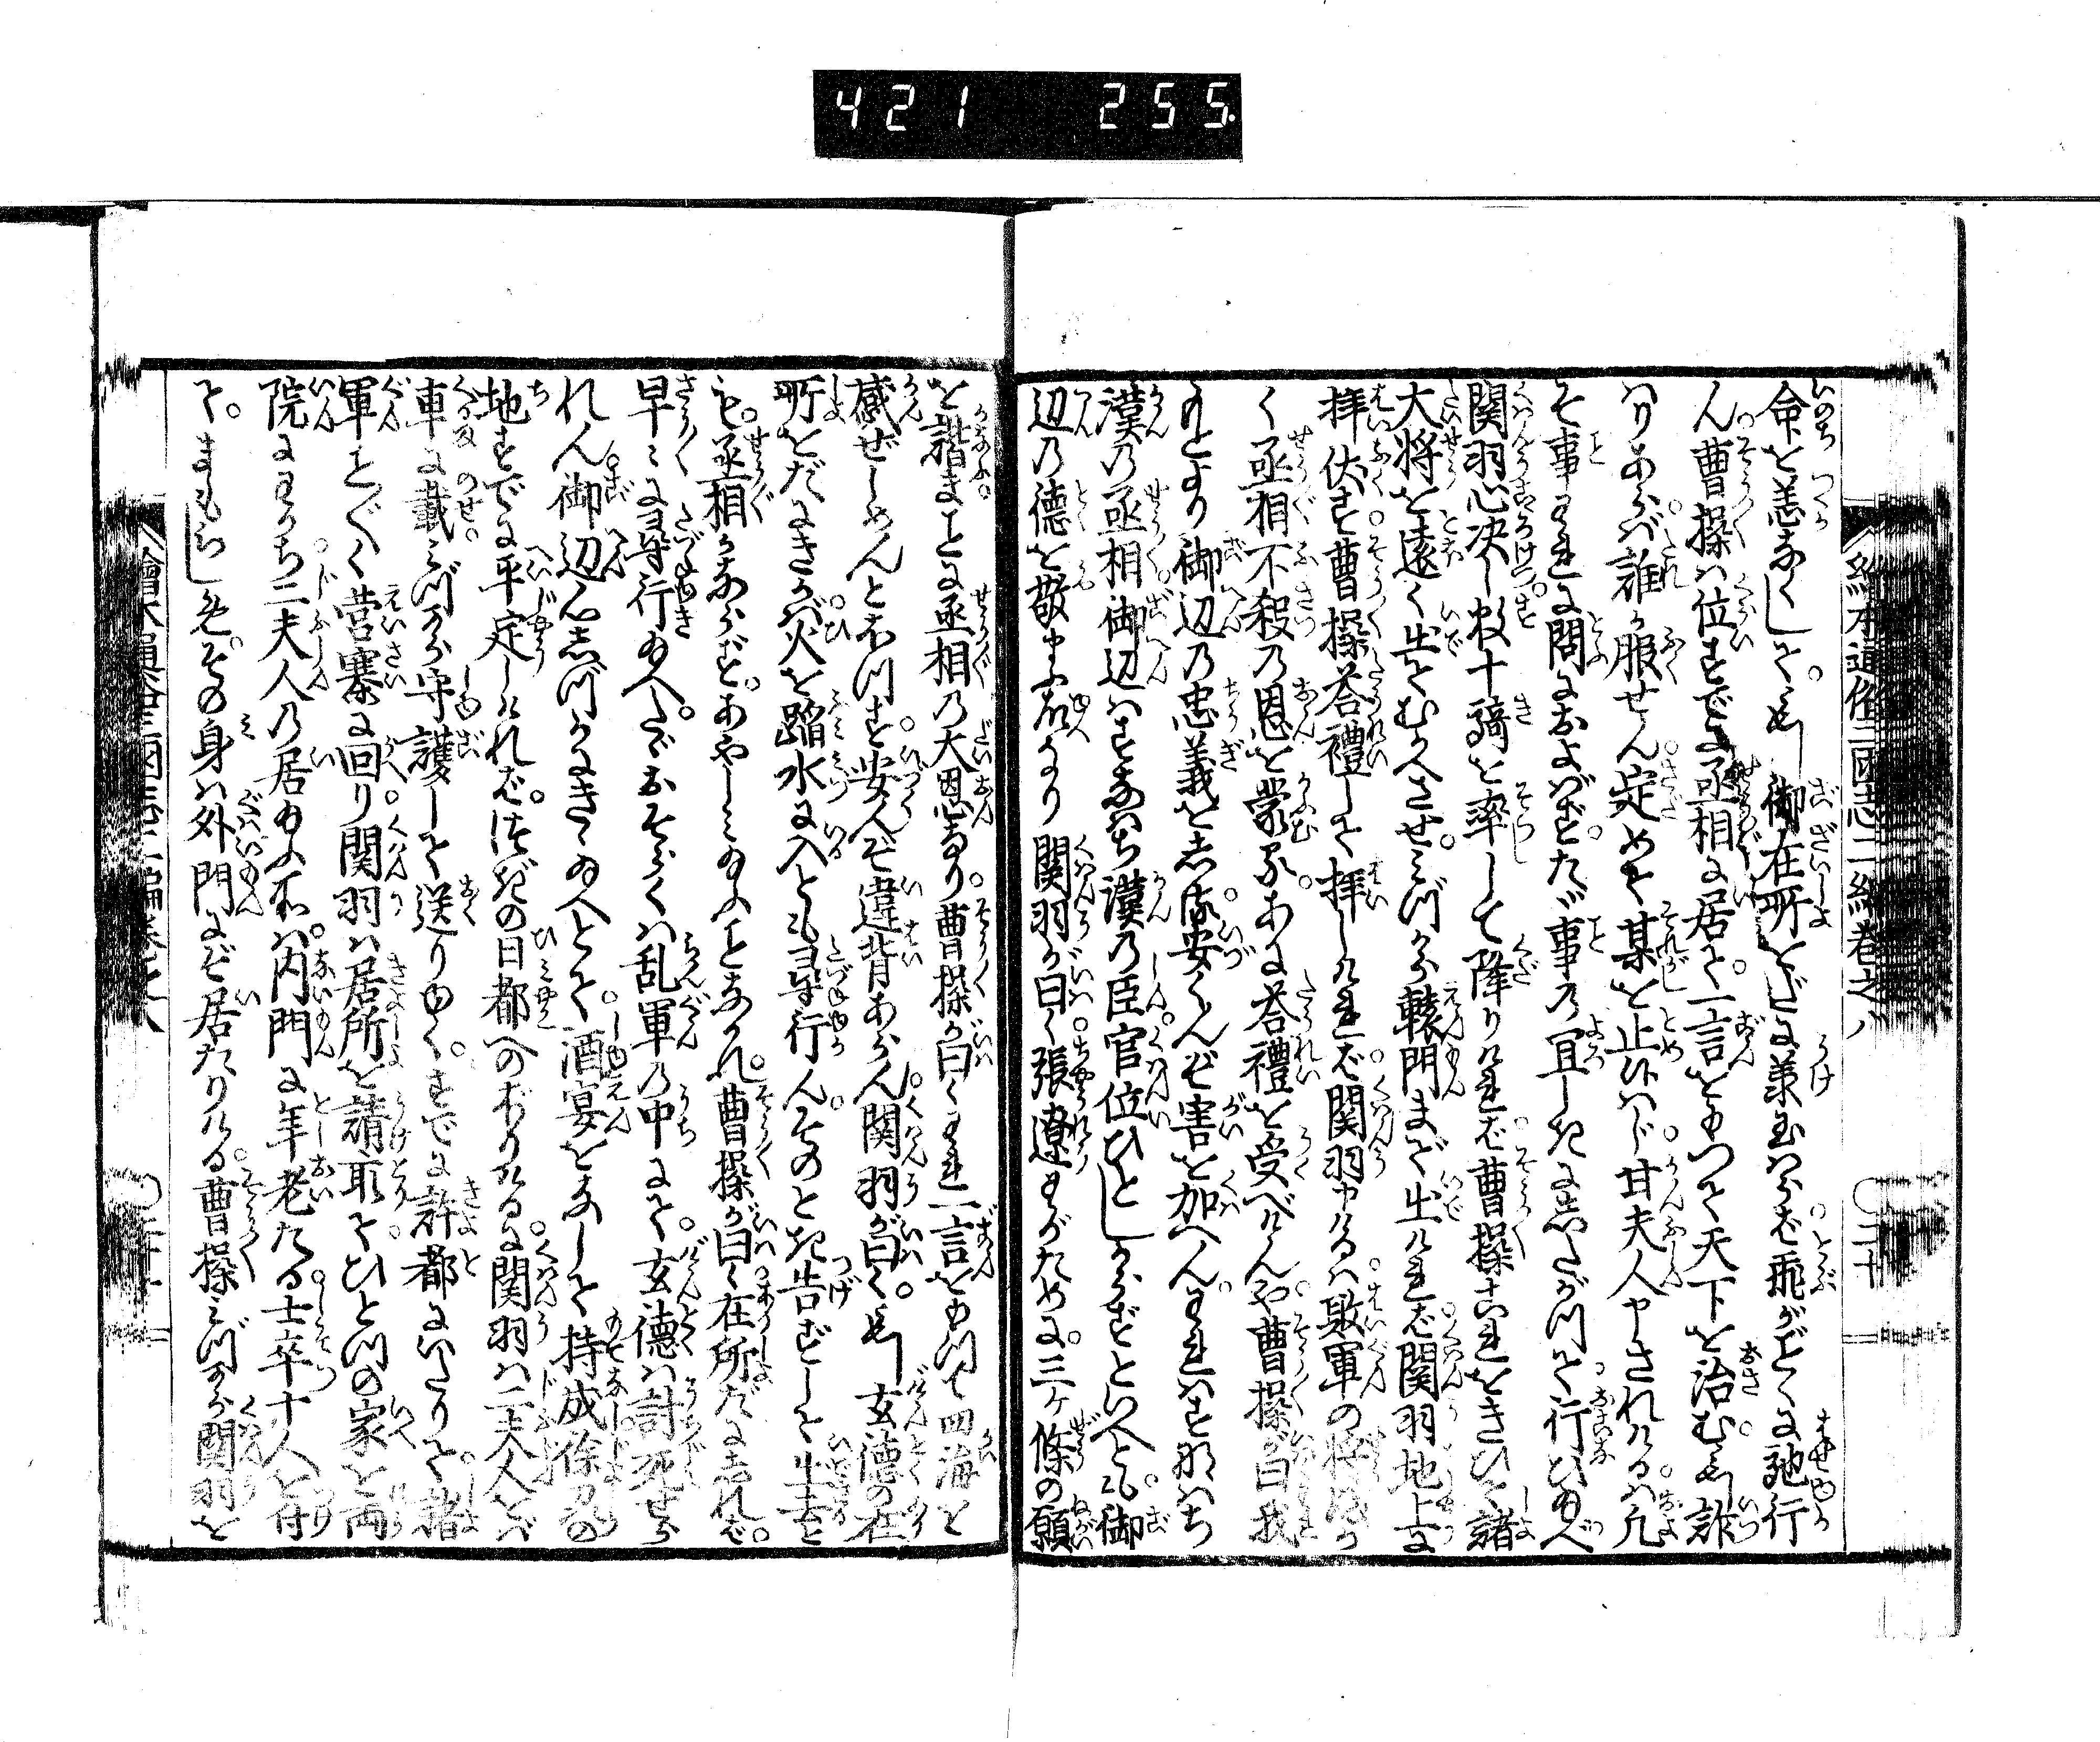 421 255
絵本通俗三國志二編巻之八
命を恙なくして若御在所をだに承はらば飛がごとくに馳行
ん曹操は位すでに丞相に居て一言をもつて天下を治む若詐
はりあらば誰か服せん定めて某を止ひはじ甘夫人申されけるは凡
そ事われに問におよばずたゞ事の宜しきにしたがつて行ひ給へ
関羽心决し数十騎を率して降りければ曹操これをきひて諸
大将を遠く出てむかへさせみづから轅門まで出ければ関羽地上に
拝伏す曹操荅禮して拝しければ関羽申けるは敗軍の将深か
く丞相不殺の恩を蒙るあに荅禮を受べけんや曹操が曰我
もとより御辺の忠義をしる安くんぞ害を加へんわれはすなはち
漢の丞相御辺はすなはち漢の臣官位ひとしからずといへども御
辺の徳を敬申ふ故なり関羽が曰く張遼わがために三ヶ條の願
を諧まことに丞相の大恩なり曹操が曰くわれ一言をもつて四海を
感ぜしめんとおつす安んぞ違背あらん関羽が曰く若玄徳の在
所をだにきかば火を蹈水に入とも尋行んそのとき告ずして出去と
も丞相かならずあやしみ給ふことなかれ曹操が曰く在所だにしれば
早々に尋行給へたゞおそらくは乱軍の中にて玄徳は討死せら
れん御辺心しづかにきゝ給へとて酒宴をなして持成徐州の
地すでに平定しければ次の日都へのぼりけるに関羽は二夫人をば
車に載みづから守護して送りゆくすでに許都にいたりて諸
軍ことごとく営寨に回り関羽は居所を請取てひとつの家を両
院にわかち二夫人の居給ふ所は内門に年老たる士卒十人を付
てまもらしめその身は外門にぞ居たりける曹操みづから関羽を